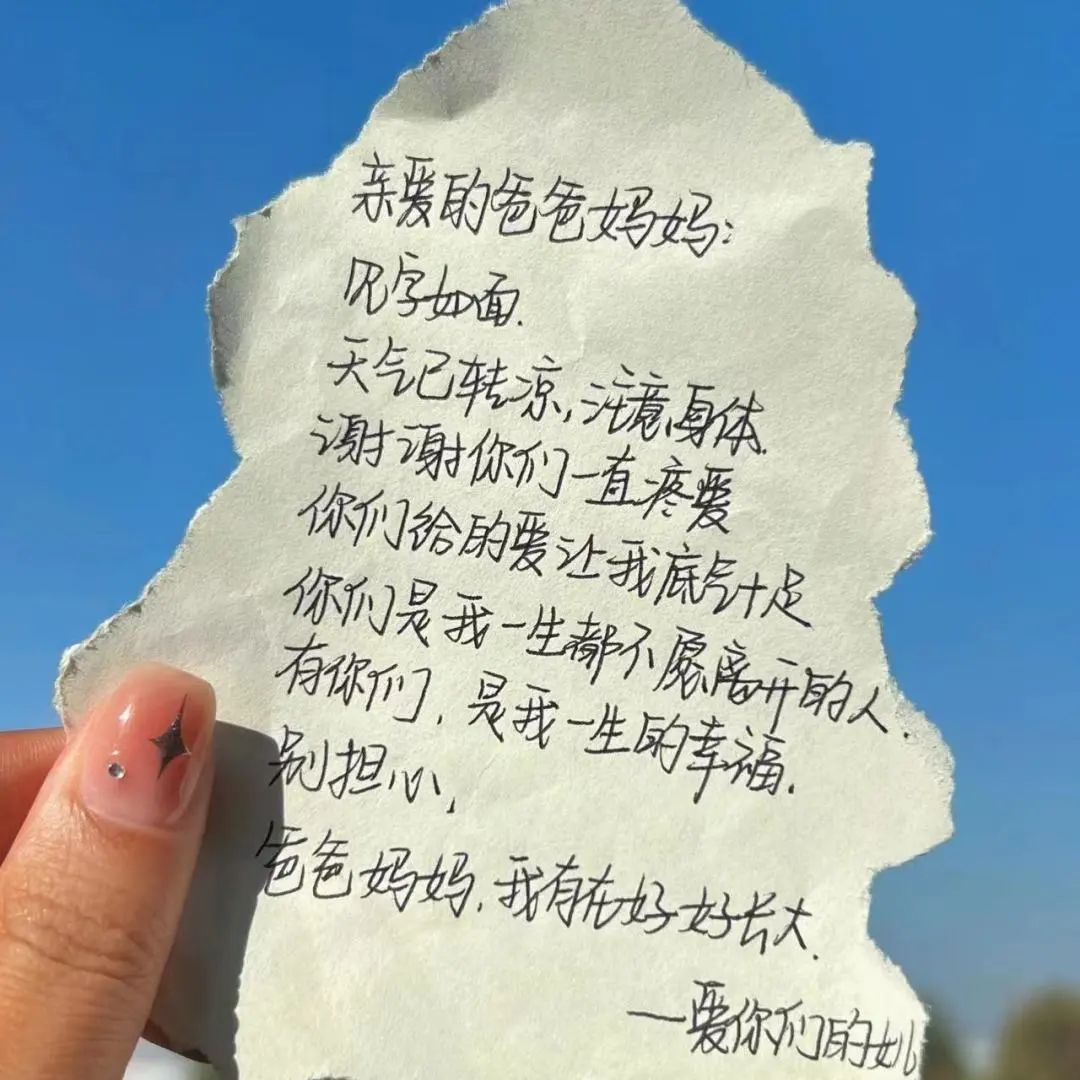 亲爱的爸爸妈妈:
见字如面.
天气已转凉,注意身体.
谢谢你们一直疼爱
你们给的爱让我底气十足
你们是我一生都不愿离开的人.
有你们,是我一生的幸福.
别担心,
爸爸妈妈,我有在好好长大.
—爱你们的